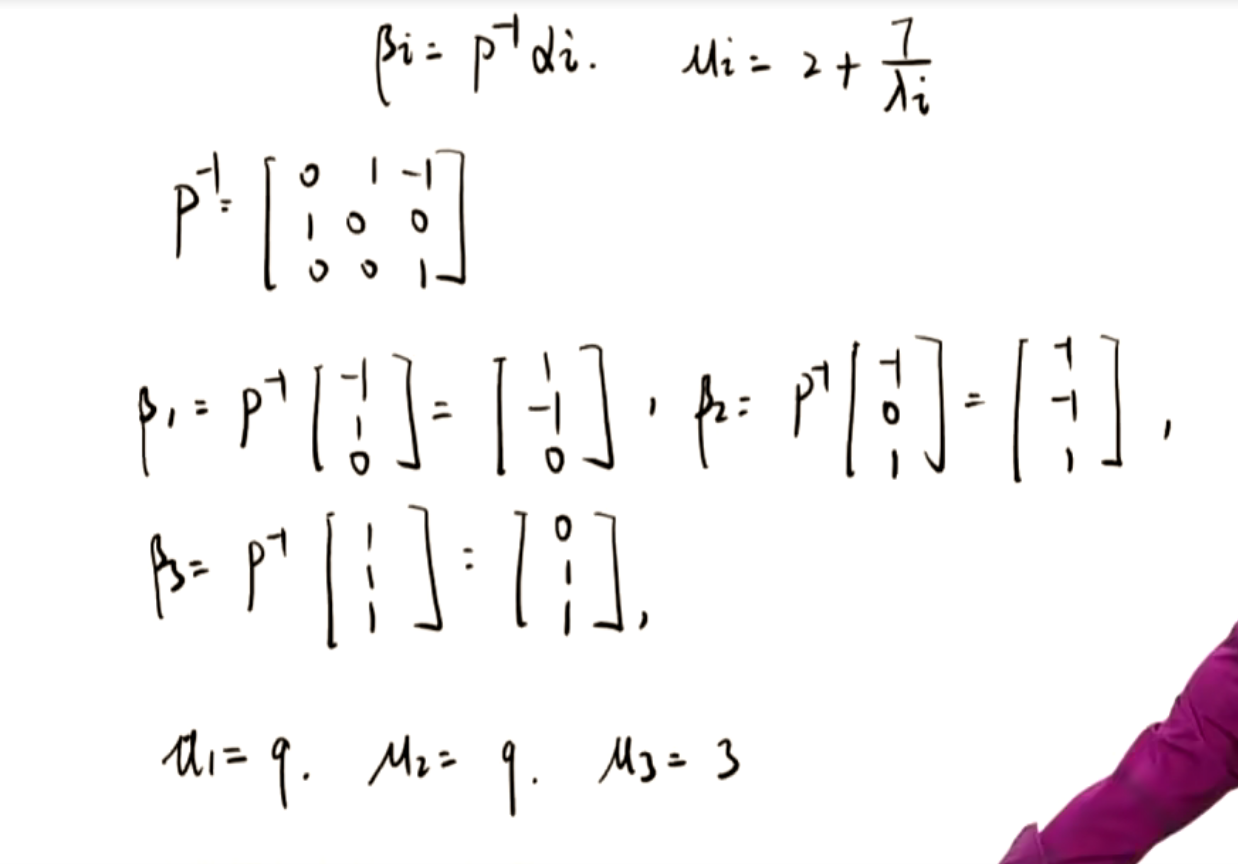 βi = P⁻¹αi. μi = 2 + 7/λi
P⁻¹ = [0 1 -1; 1 0 0; 0 0 1]
β₁ = P⁻¹ [-1; 1; 0] = [1; -1; 0], β₂ = P⁻¹ [-1; 0; 1] = [-1; -1; 1],
β₃ = P⁻¹ [1; 1; 1] = [0; 1; 1],
μ₁ = 9. μ₂ = 9. μ₃ = 3